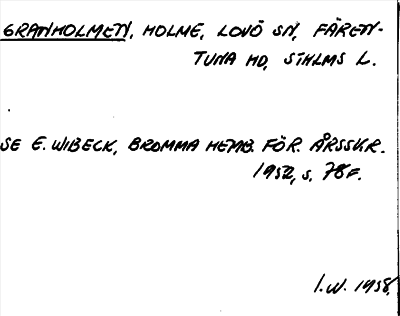 GRANHOLMEN, HOLME, LOVÖ SN, FÄREN-
TUNA HD, STHLMS L.
SE E. WIBECK, BROMMA HEMB. FÖR. ÅRSSKR.
1952, s. 78 F.
I.W. 1958.